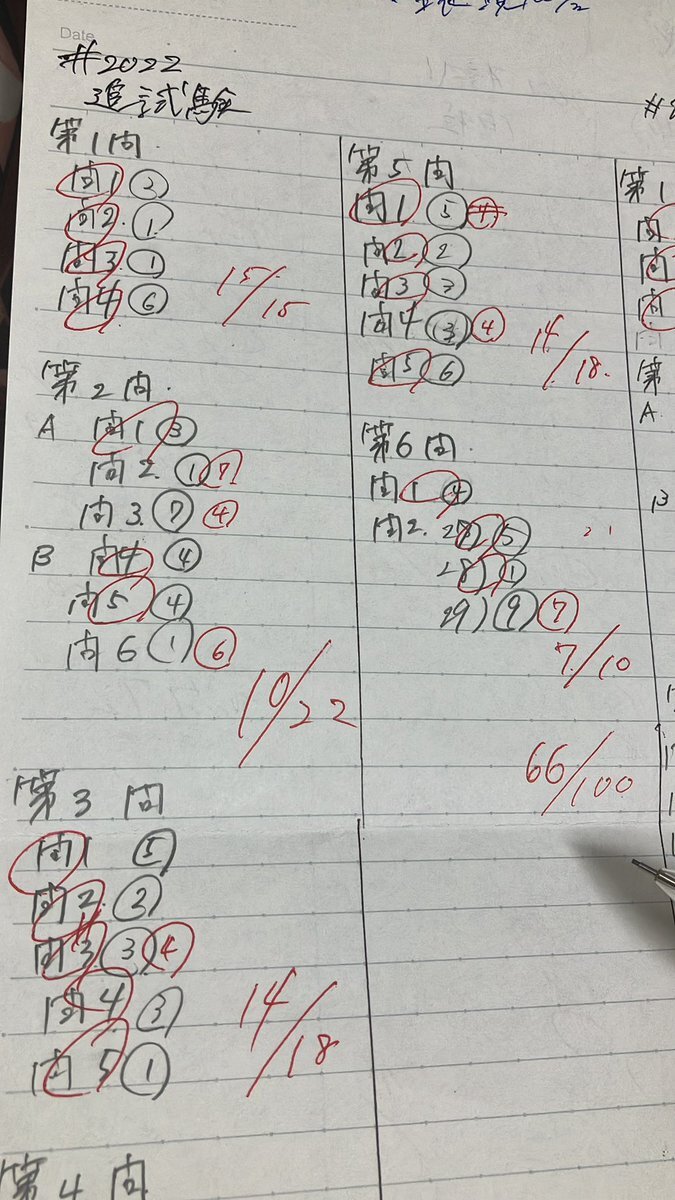 Date
#2022
追試験
第1問
問1 ②
問2. ①
問3. ①
問4 ⑥
15/15
第2問.
A 問1 ③
問2. ① ⑦
問3. ⑦ ④
B 問4 ④
問5 ④
問6 ① ⑥
10/22
第3問
問1 ⑤
問2. ②
問3 ③ ④
問4 ③
問5 ①
14/18
第4問
第5問
問1 ⑤ ④
問2 ②
問3
問4 ④
問5 ⑥
14/18.
第6問.
問1 ④
問2. ⑤
28) ①
29) ⑨ ⑦
7/10
66/100
第1
問
問
問
第
A
B